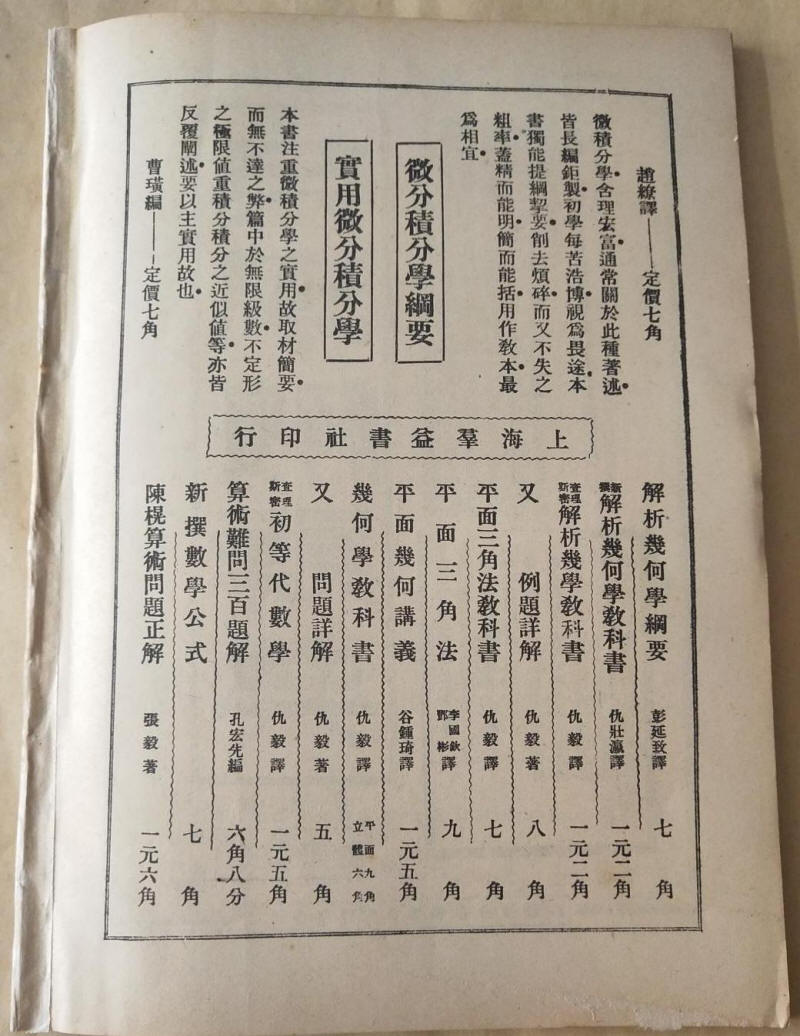 趙繚譯——定價七角
微積分學含理宏富通常關於此種著述
皆長編鉅製初學每苦浩博視爲畏途本
書獨能提綱挈要削去煩碎而又不失之
粗率蓋精而能明簡而能括用作敎本最
爲相宜
微分積分學綱要
實用微分積分學
本書注重微積分學之實用故取材簡要
而無不達之弊篇中於無限級數不定形
之極限値重積分積分之近似値等亦皆
反覆闡述要以主實用故也
曹璜編——定價七角
上海羣益書社印行
解析幾何學綱要 彭延致譯 七角
新撰解析幾何學敎科書 仇壯瀛譯 一元二角
查理斯密解析幾學敎科書 仇毅譯 一元二角
又 例題詳解 仇毅著 八角
平面三角法敎科書 仇毅譯 七角
平面三角法 李國欽 鄧彬譯 九角
平面幾何講義 谷鍾琦譯 一元五角
幾何學敎科書 仇毅譯 平面九角 立體六角
又 問題詳解 仇毅著 五角
查理斯密初等代數學 仇毅譯 一元五角
算術難問三百題解 孔宏先編 六角八分
新撰數學公式 七角
陳棍算術問題正解 張毅著 一元六角